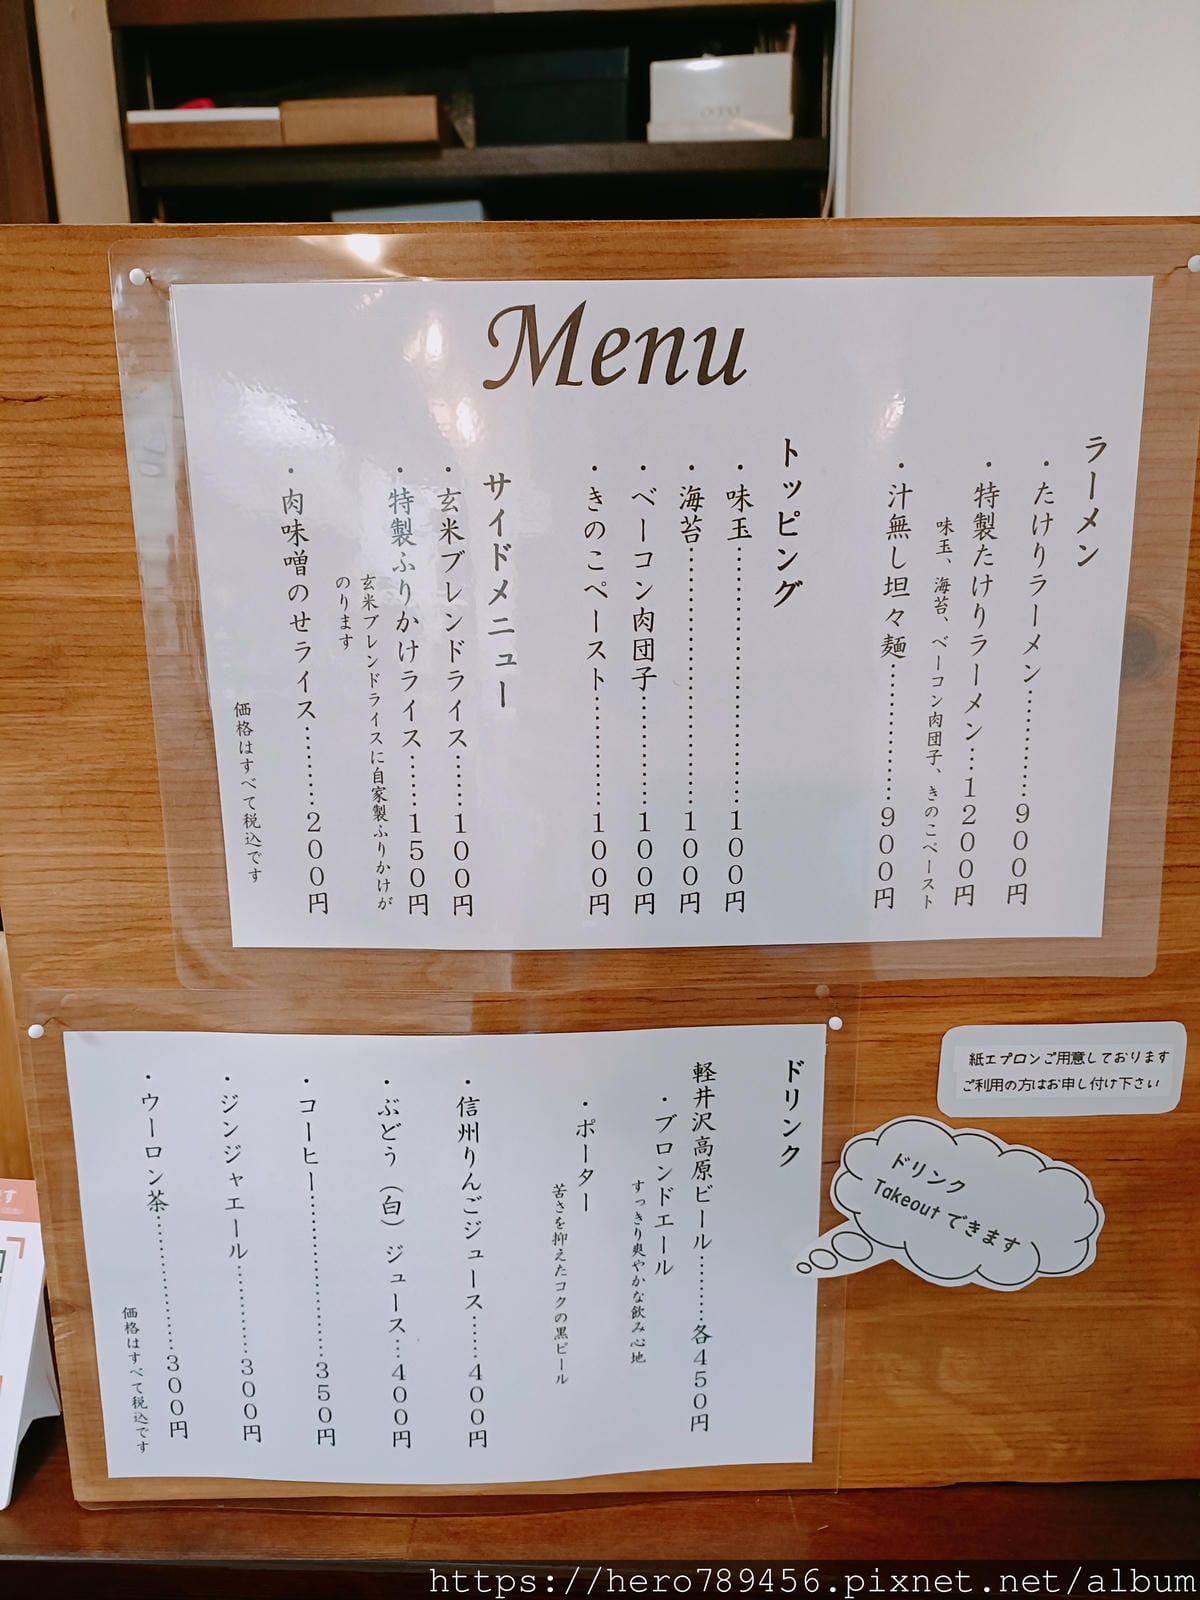 Menu
ラーメン
・たけりラーメン…………900円
・特製たけりラーメン…1200円
味玉、海苔、ベーコン肉団子、きのこペースト
・汁無し坦々麺…………900円
トッピング
・味玉……………………100円
・海苔……………………100円
・ベーコン肉団子…………100円
・きのこペースト…………100円
サイドメニュー
・玄米ブレンドライス……100円
・特製ふりかけライス……150円
玄米ブレンドライスに自家製ふりかけが
のります
・肉味噌のせライス………200円
価格はすべて税込です
ドリンク
軽井沢高原ビール………各450円
・ブロンドエール
すっきり爽やかな飲み心地
・ポーター
苦さを抑えたコクの黒ビール
・信州りんごジュース……400円
・ぶどう（白）ジュース…400円
・コーヒー………………350円
・ジンジャエール…………300円
・ウーロン茶………………300円
価格はすべて税込です
紙エプロンご用意しております
ご利用の方はお申し付け下さい
ドリンク
Takeoutできます
https://hero789456.pixnet.net/album